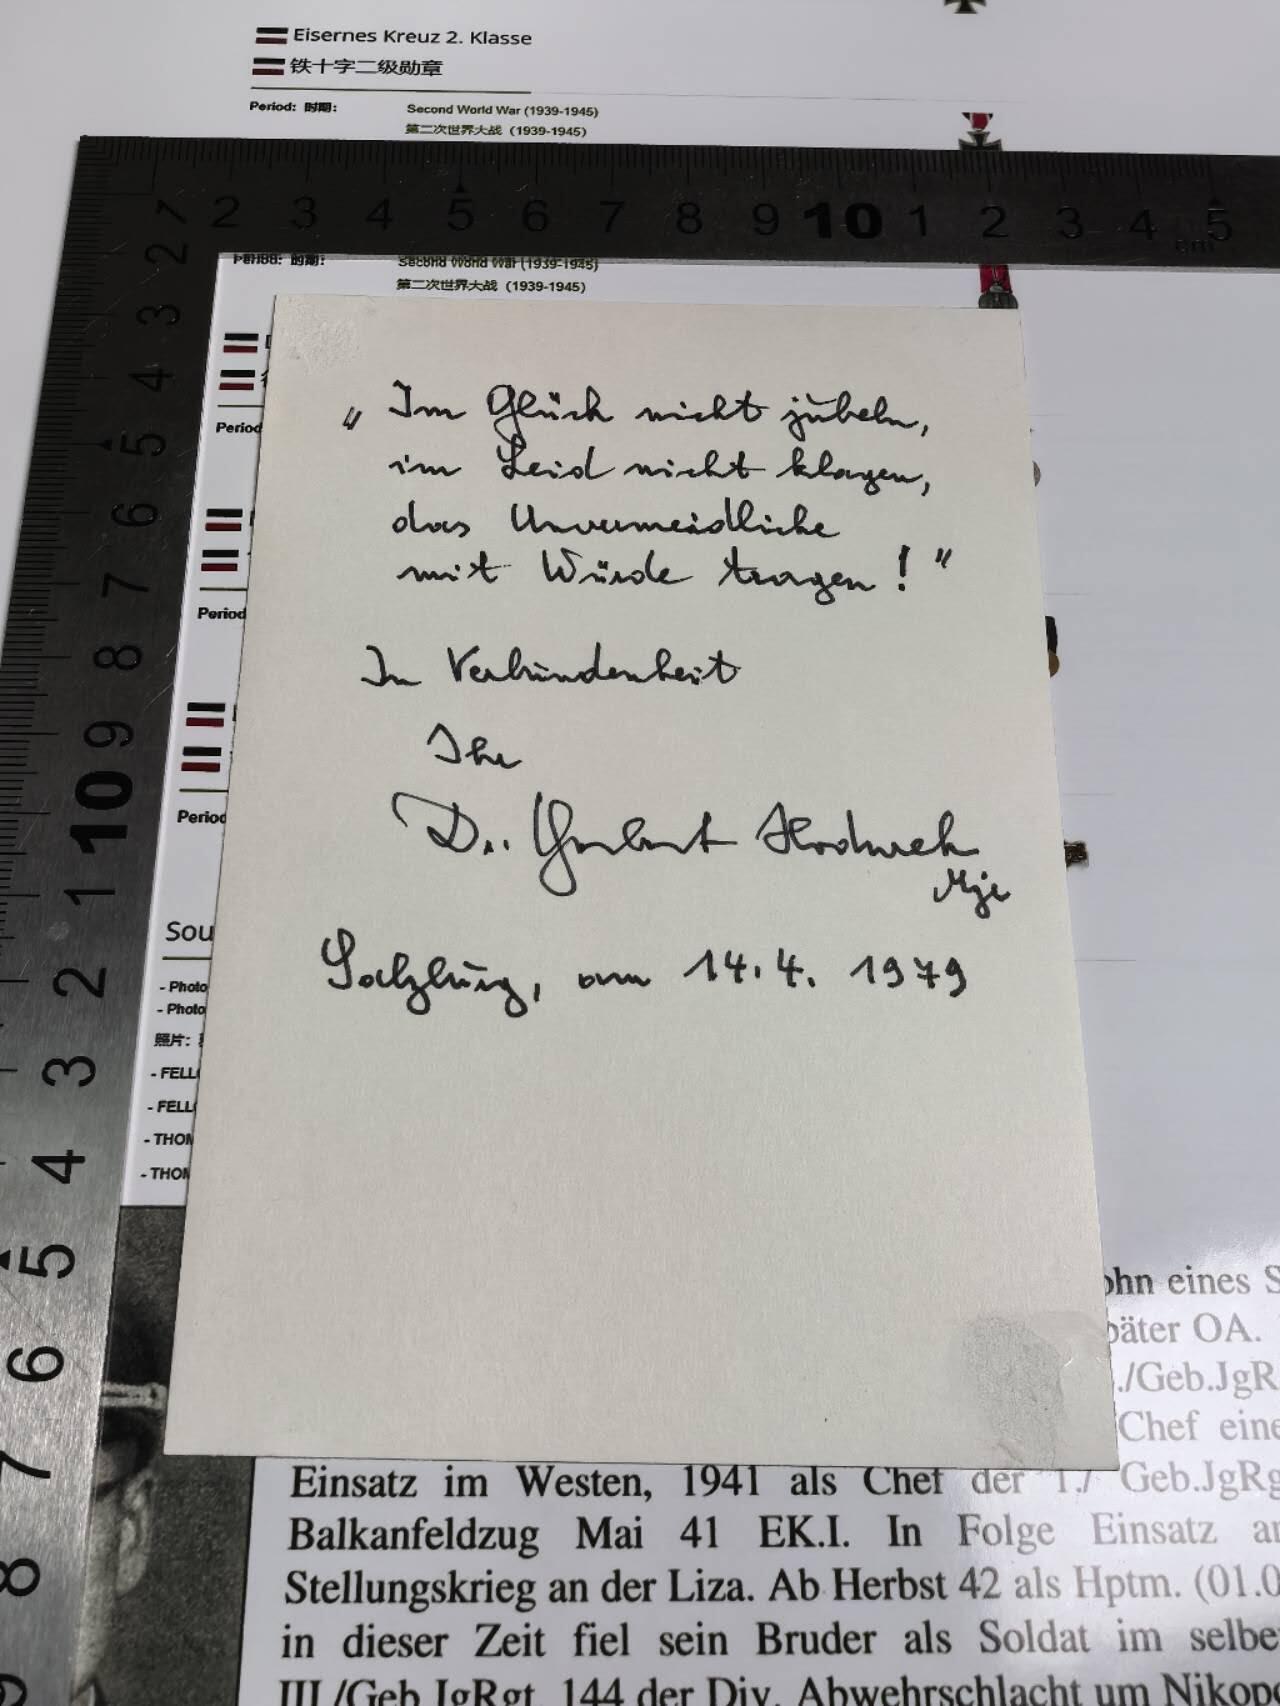 Eisernes Kreuz 2. Klasse
铁十字二级勋章
Period: 时期: Second World War (1939-1945)
第二次世界大战 (1939-1945)
1 2 3 4 5 6 7 8 9 10 1 2 3 4 5
cm
2 3 4 5 6 7 8 9 10 1 2 3 4 5 6 7 8 9
Second World War (1939-1945)
第二次世界大战 (1939-1945)
Period
Period
Period
„Im Glück nicht jubeln,
im Leid nicht klagen,
das Unvermeidliche
mit Würde tragen!"
In Verbundenheit
Ihr
Dr.
Salzburg, am 14.4. 1979
Sou
- Photo
- Photo
照片:
- FELL
- FELL
- THOM
- THOM
ohn eines S
päter OA.
./Geb.JgR
Chef eine
Einsatz im Westen, 1941 als Chef der 1./ Geb.JgRg
Balkanfeldzug Mai 41 EK.I. In Folge Einsatz an
Stellungskrieg an der Liza. Ab Herbst 42 als Hptm. (01.0
in dieser Zeit fiel sein Bruder als Soldat im selbe
III./Geb.JgRgt. 144 der Div. Abwehrschlacht um Nikop